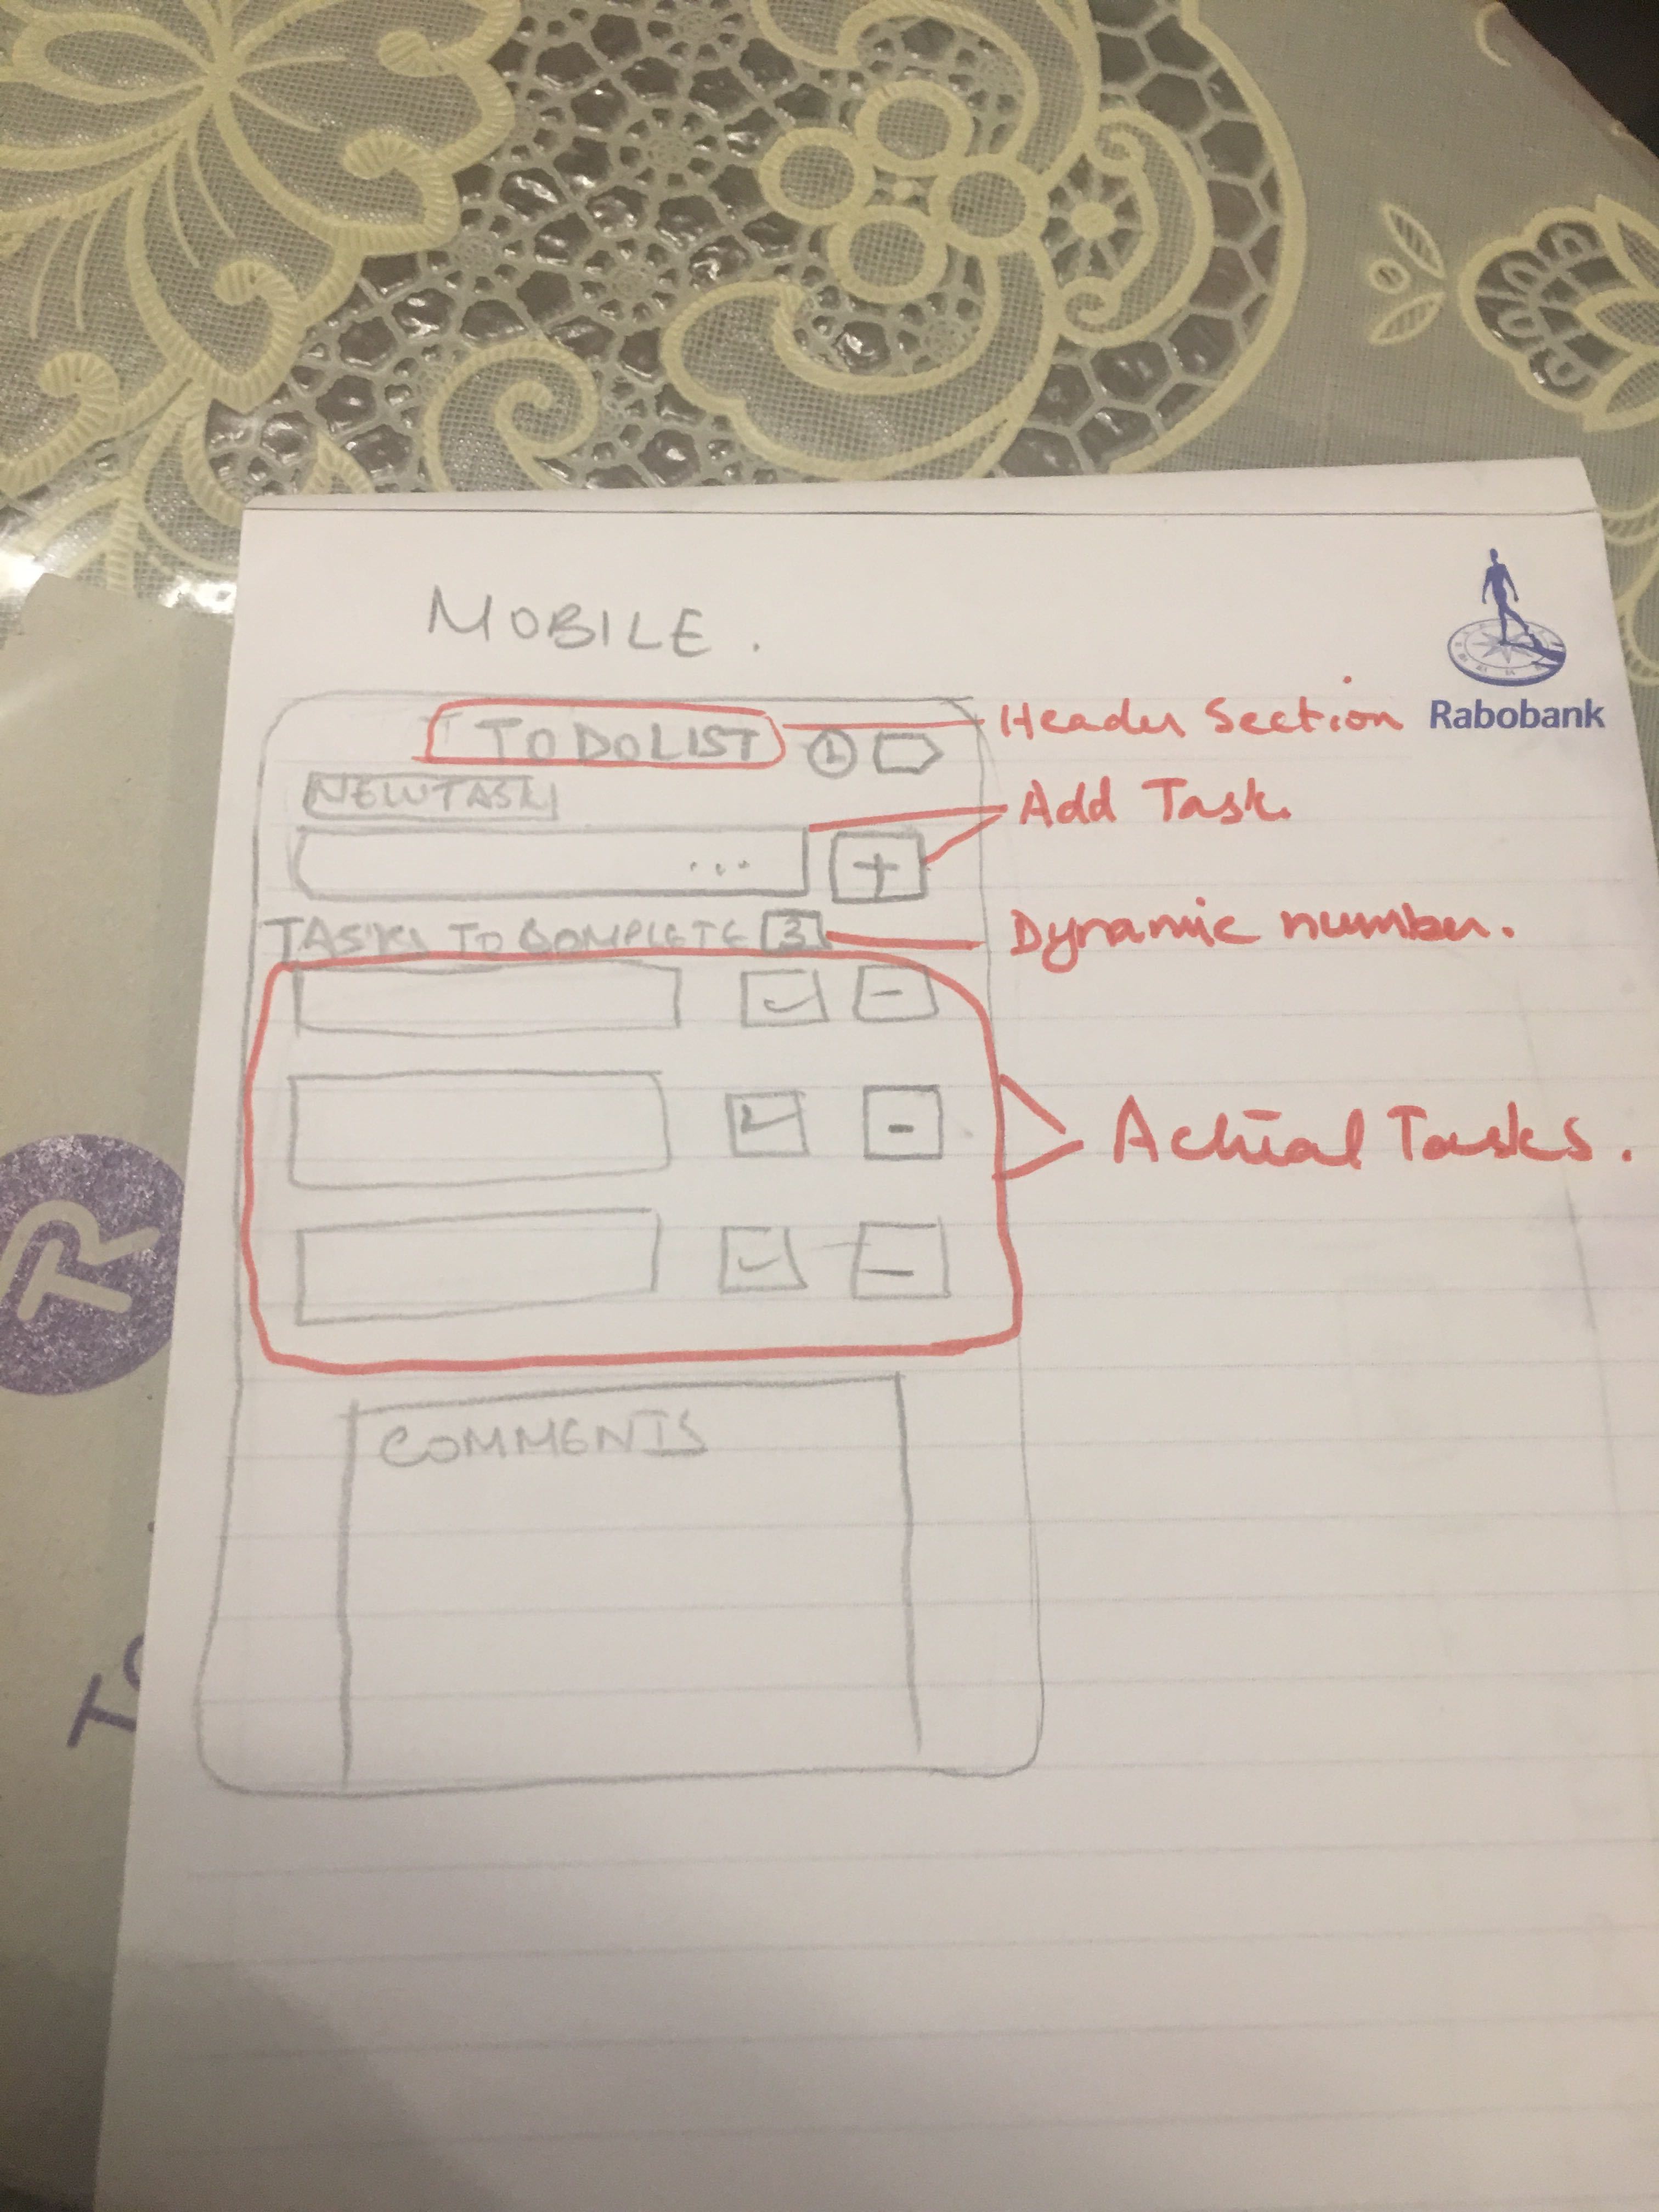 MOBILE.
Rabobank
TO DO LIST
Header Section
NEW TASK
Add Task.
...
+
TASKS TO COMPLETE 3
Dynamic number.
-
-
-
Actual Tasks.
COMMENTS
TR